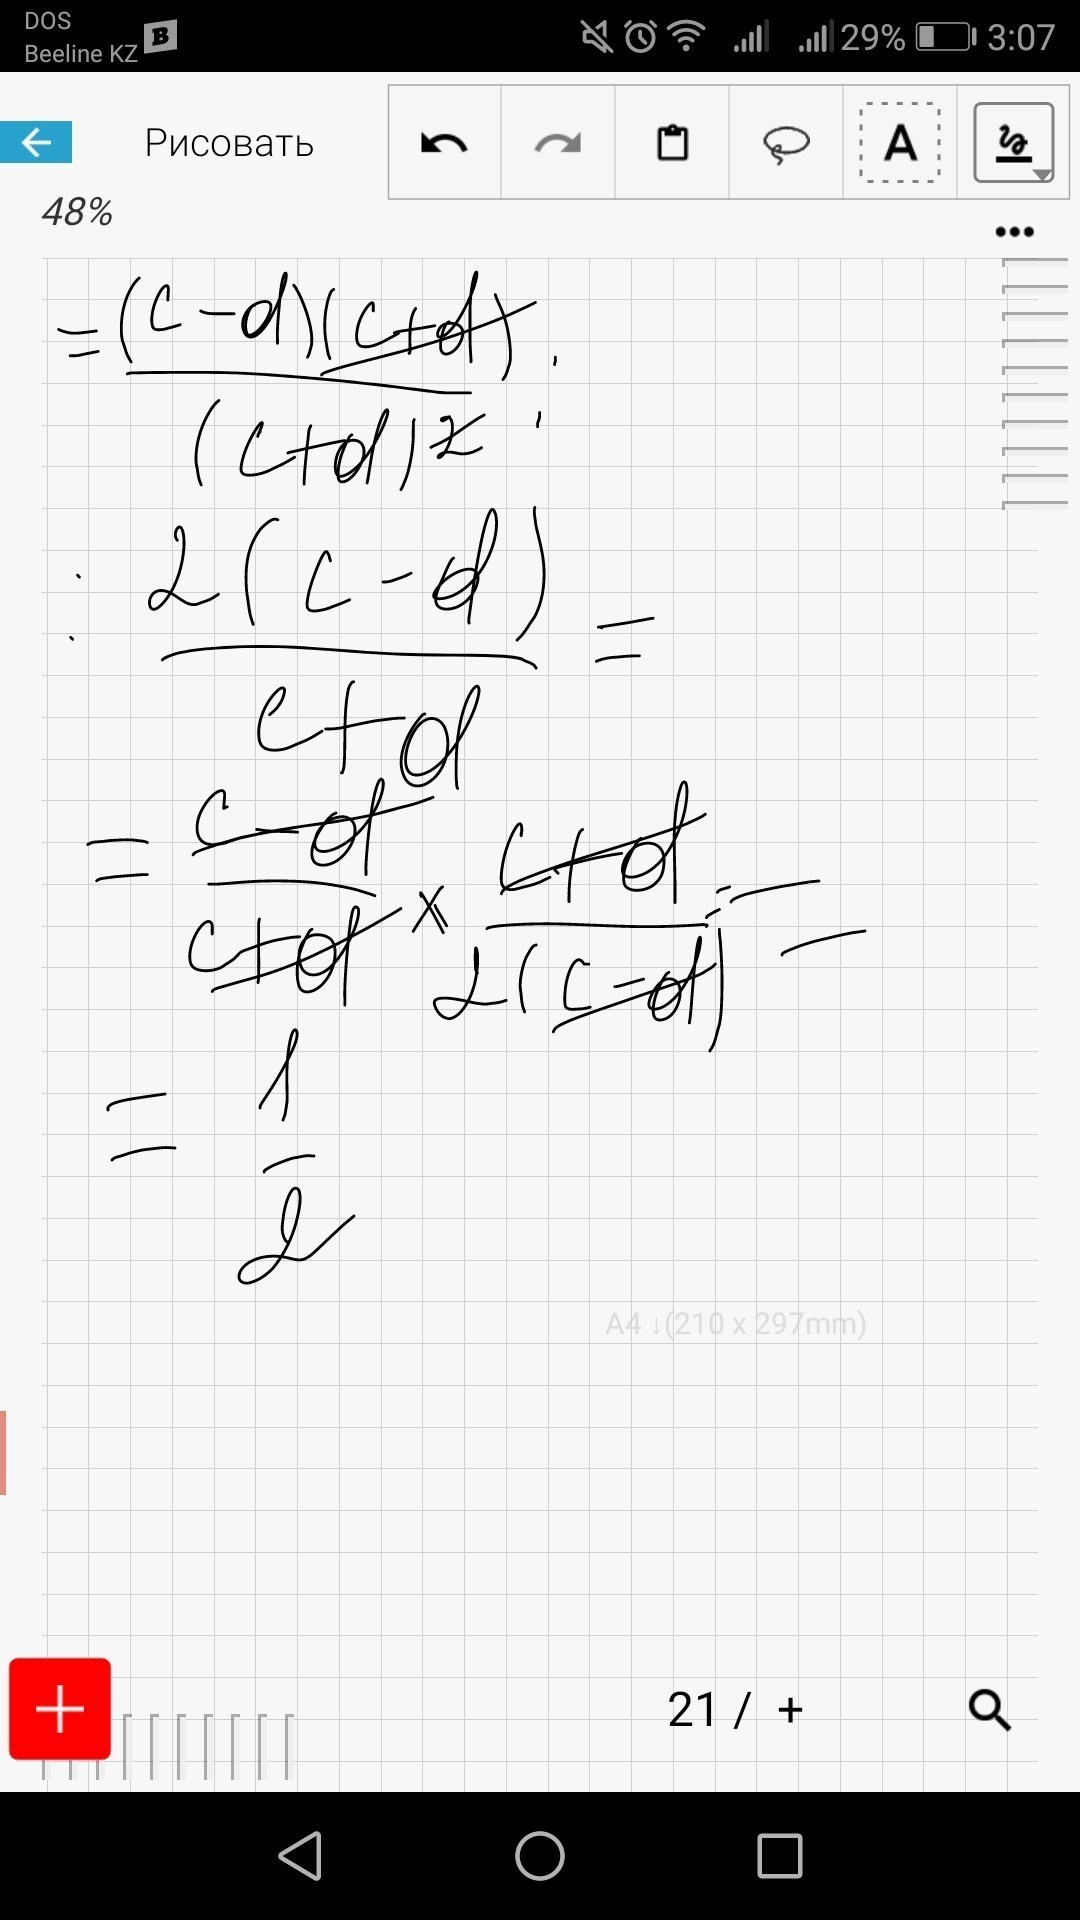 DOS
Beeline KZ B 29% 3:07
Рисовать A
48%
= (c-d)(c+d) / (c+d)² :
: 2(c-d) / c+d =
= c-d / c+d × c+d / 2(c-d) =
= 1 / 2
A4 ↓(210 x 297mm)
21 / +